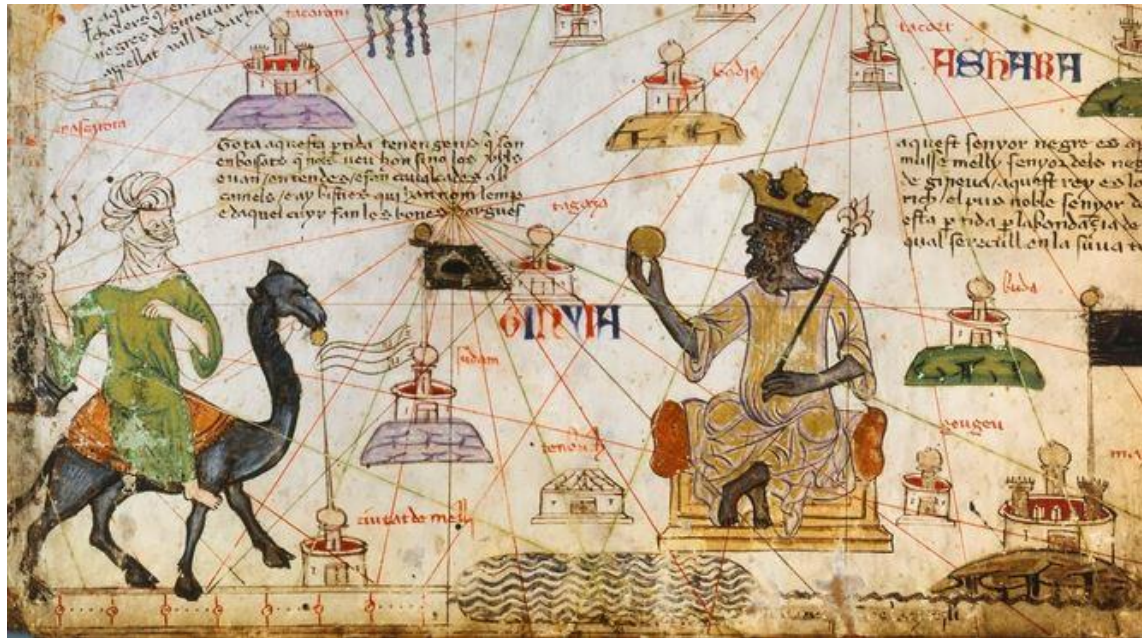 negres de gineua
apellat vall de darha
tacort
ASHARA
Tota aquesta ptida tenen gens q son
enbossats q nols veu hom sino los uyls
e uan en tendes e fan caualcades ab
camels e ay bisties qui han nom lemp
e daquel cuyr fan les bones dargues
aquest senyor negre es ap
musse melly senyor dels neg
de gineua aquest rey es lo
rich el pus noble senyor de
esta ptida p labondazia de
qual se recull en la suua t
tagaza
buda
GINYIA
sudam
tenbuch
geugeu
ma
ciutat de melly